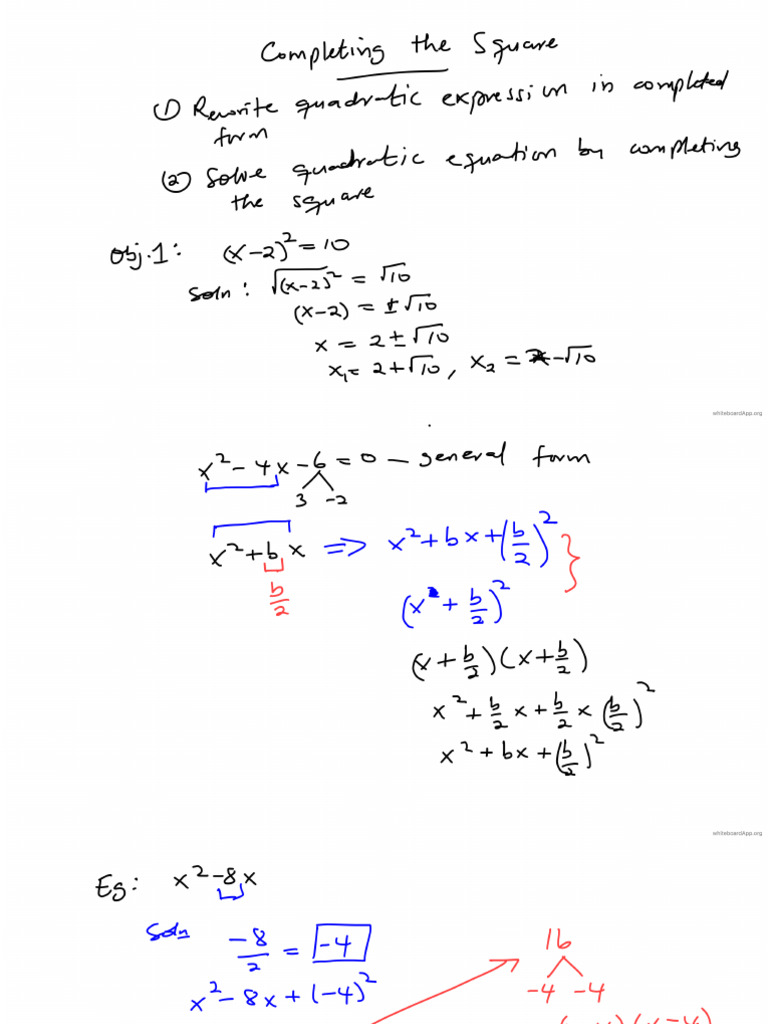 Completing the Square
① Rewrite quadratic expression in completed
form
② Solve quadratic equation by completing
the square
Obj.1: (x-2)² = 10
Soln: √(x-2)² = √10
(x-2) = ±√10
x = 2 ± √10
x₁ = 2+√10, x₂ = 2-√10
whiteboardApp.org
x² - 4x - 6 = 0 — general form
3 -2
x² + bx ⇒ x² + bx + (b/2)² }
b/2
(x + b/2)²
(x + b/2)(x + b/2)
x² + b/2 x + b/2 x (b/2)²
x² + bx + (b/2)²
whiteboardApp.org
Eg: x² - 8x
Soln
-8/2 = -4
16
-4 -4
x² - 8x + (-4)²